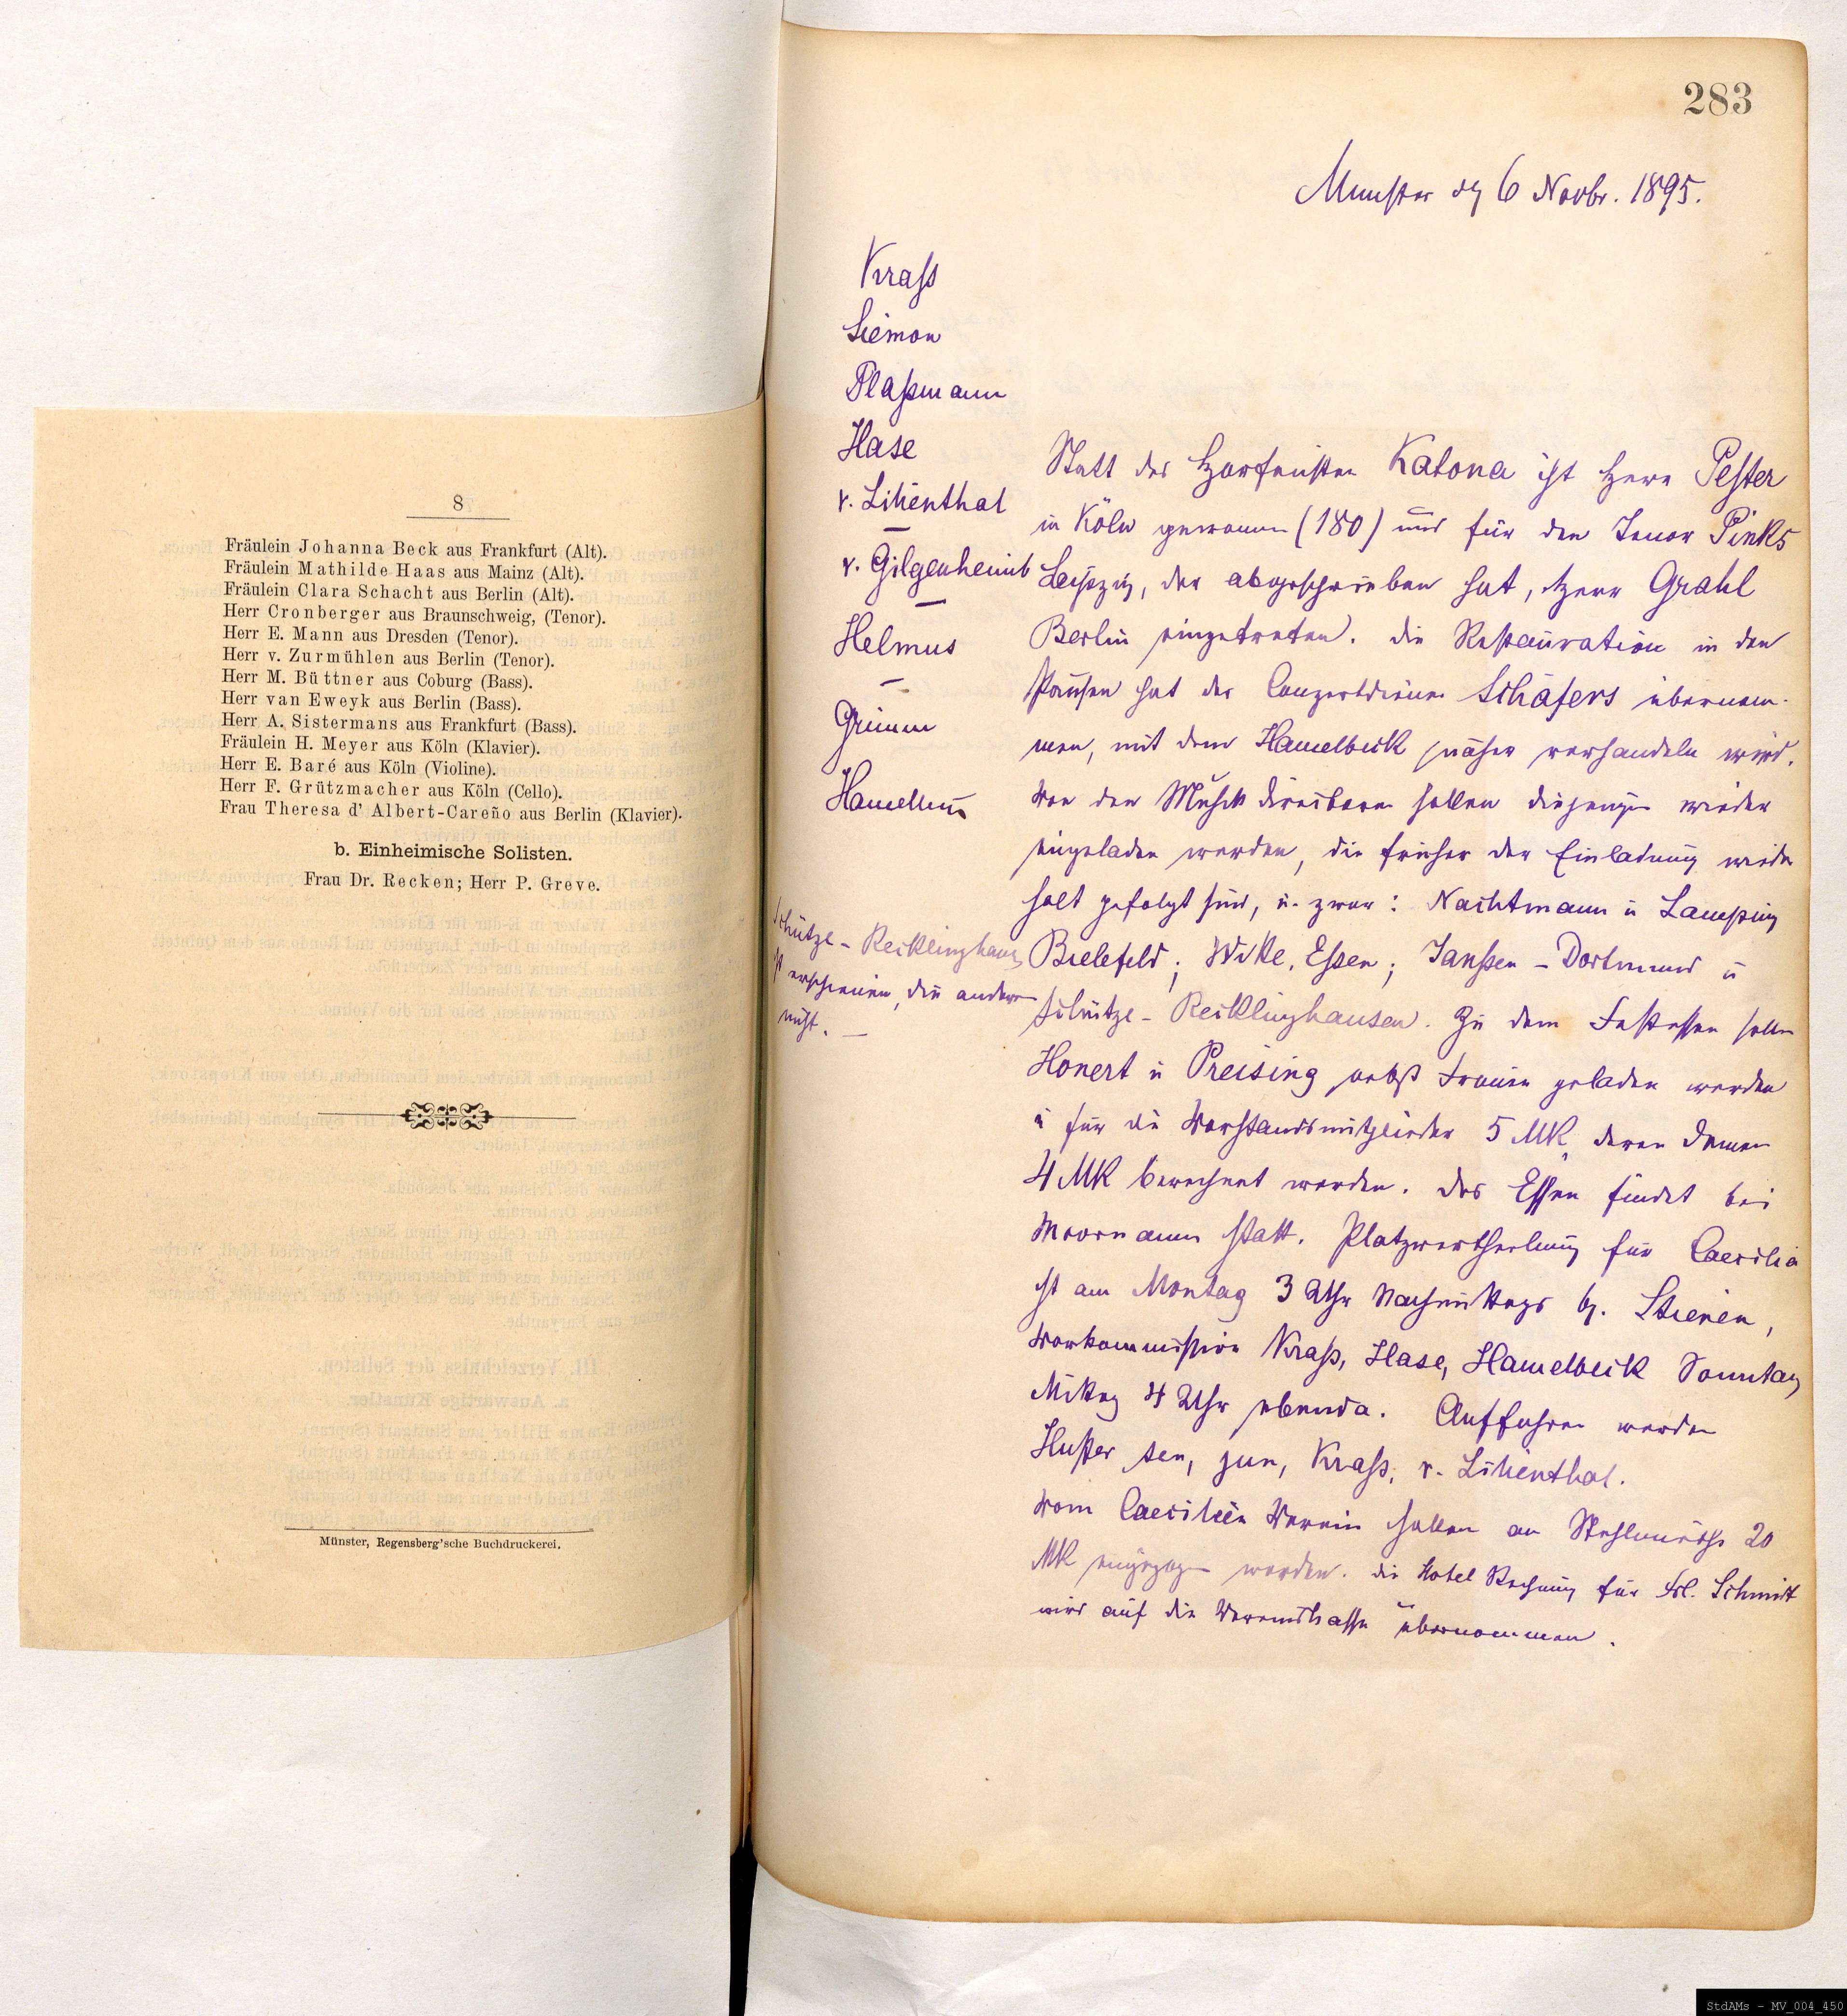 8
Fräulein Johanna Beck aus Frankfurt (Alt).
Fräulein Mathilde Haas aus Mainz (Alt).
Fräulein Clara Schacht aus Berlin (Alt).
Herr Cronberger aus Braunschweig, (Tenor).
Herr E. Mann aus Dresden (Tenor).
Herr v. Zurmühlen aus Berlin (Tenor).
Herr M. Büttner aus Coburg (Bass).
Herr van Eweyk aus Berlin (Bass).
Herr A. Sistermans aus Frankfurt (Bass).
Fräulein H. Meyer aus Köln (Klavier).
Herr E. Baré aus Köln (Violine).
Herr F. Grützmacher aus Köln (Cello).
Frau Theresa d' Albert-Careño aus Berlin (Klavier).
b. Einheimische Solisten.
Frau Dr. Recken; Herr P. Greve.
Münster, Regensberg'sche Buchdruckerei.
283
Münster d 6 Novbr. 1895.
Krass
Siemon
Plaßmann
Hase
v. Lilienthal
v. Gilgenheimb
Helmus
Grimm
Hamelbeck
Schütze - Recklinghaus
ist erschienen, die andern
nicht. —
Statt des Harfenisten Katona ist Herr Pester
in Köln gewonnen (180) und für den Tenor Pinks
Leipzig, der abgeschrieben hat, Herr Grahl
Berlin eingetreten. Die Restauration in den
Pausen hat der Conzertdiener Schäfers übernom-
men, mit dem Hamelbeck näher verhandeln wird.
Von den Musikdirectoren sollen diejenigen wieder
eingeladen werden, die früher der Einladung wieder
holt gefolgt sind, u. zwar: Nachtmann u Lamping
Bielefeld; Witte, Essen; Janssen - Dortmund u
Schütze - Recklinghausen. Zu dem Festessen sollen
Honert u Preising nebst Frauen geladen werden
u für die Vorstandsmitglieder 5 MK, deren Damen
4 MK berechnet werden. Das Essen findet bei
Moormann statt. Platzvertheilung für Caecilia
ist am Montag 3 Uhr Nachmittags b. Stienen,
Vorkommission Krass, Hase, Hamelbeck Sonntag
Mittag 4 Uhr ebenda. Auffahren werden
Hüffer sen, jun, Krass, v. Lilienthal.
Vom Caecilien Verein sollen an 20
MK eingezogen werden. Die Hotel Rechnung für Frl. Schmidt
wird auf die Vereinskasse übernommen.
StdAMs - MV_004_450